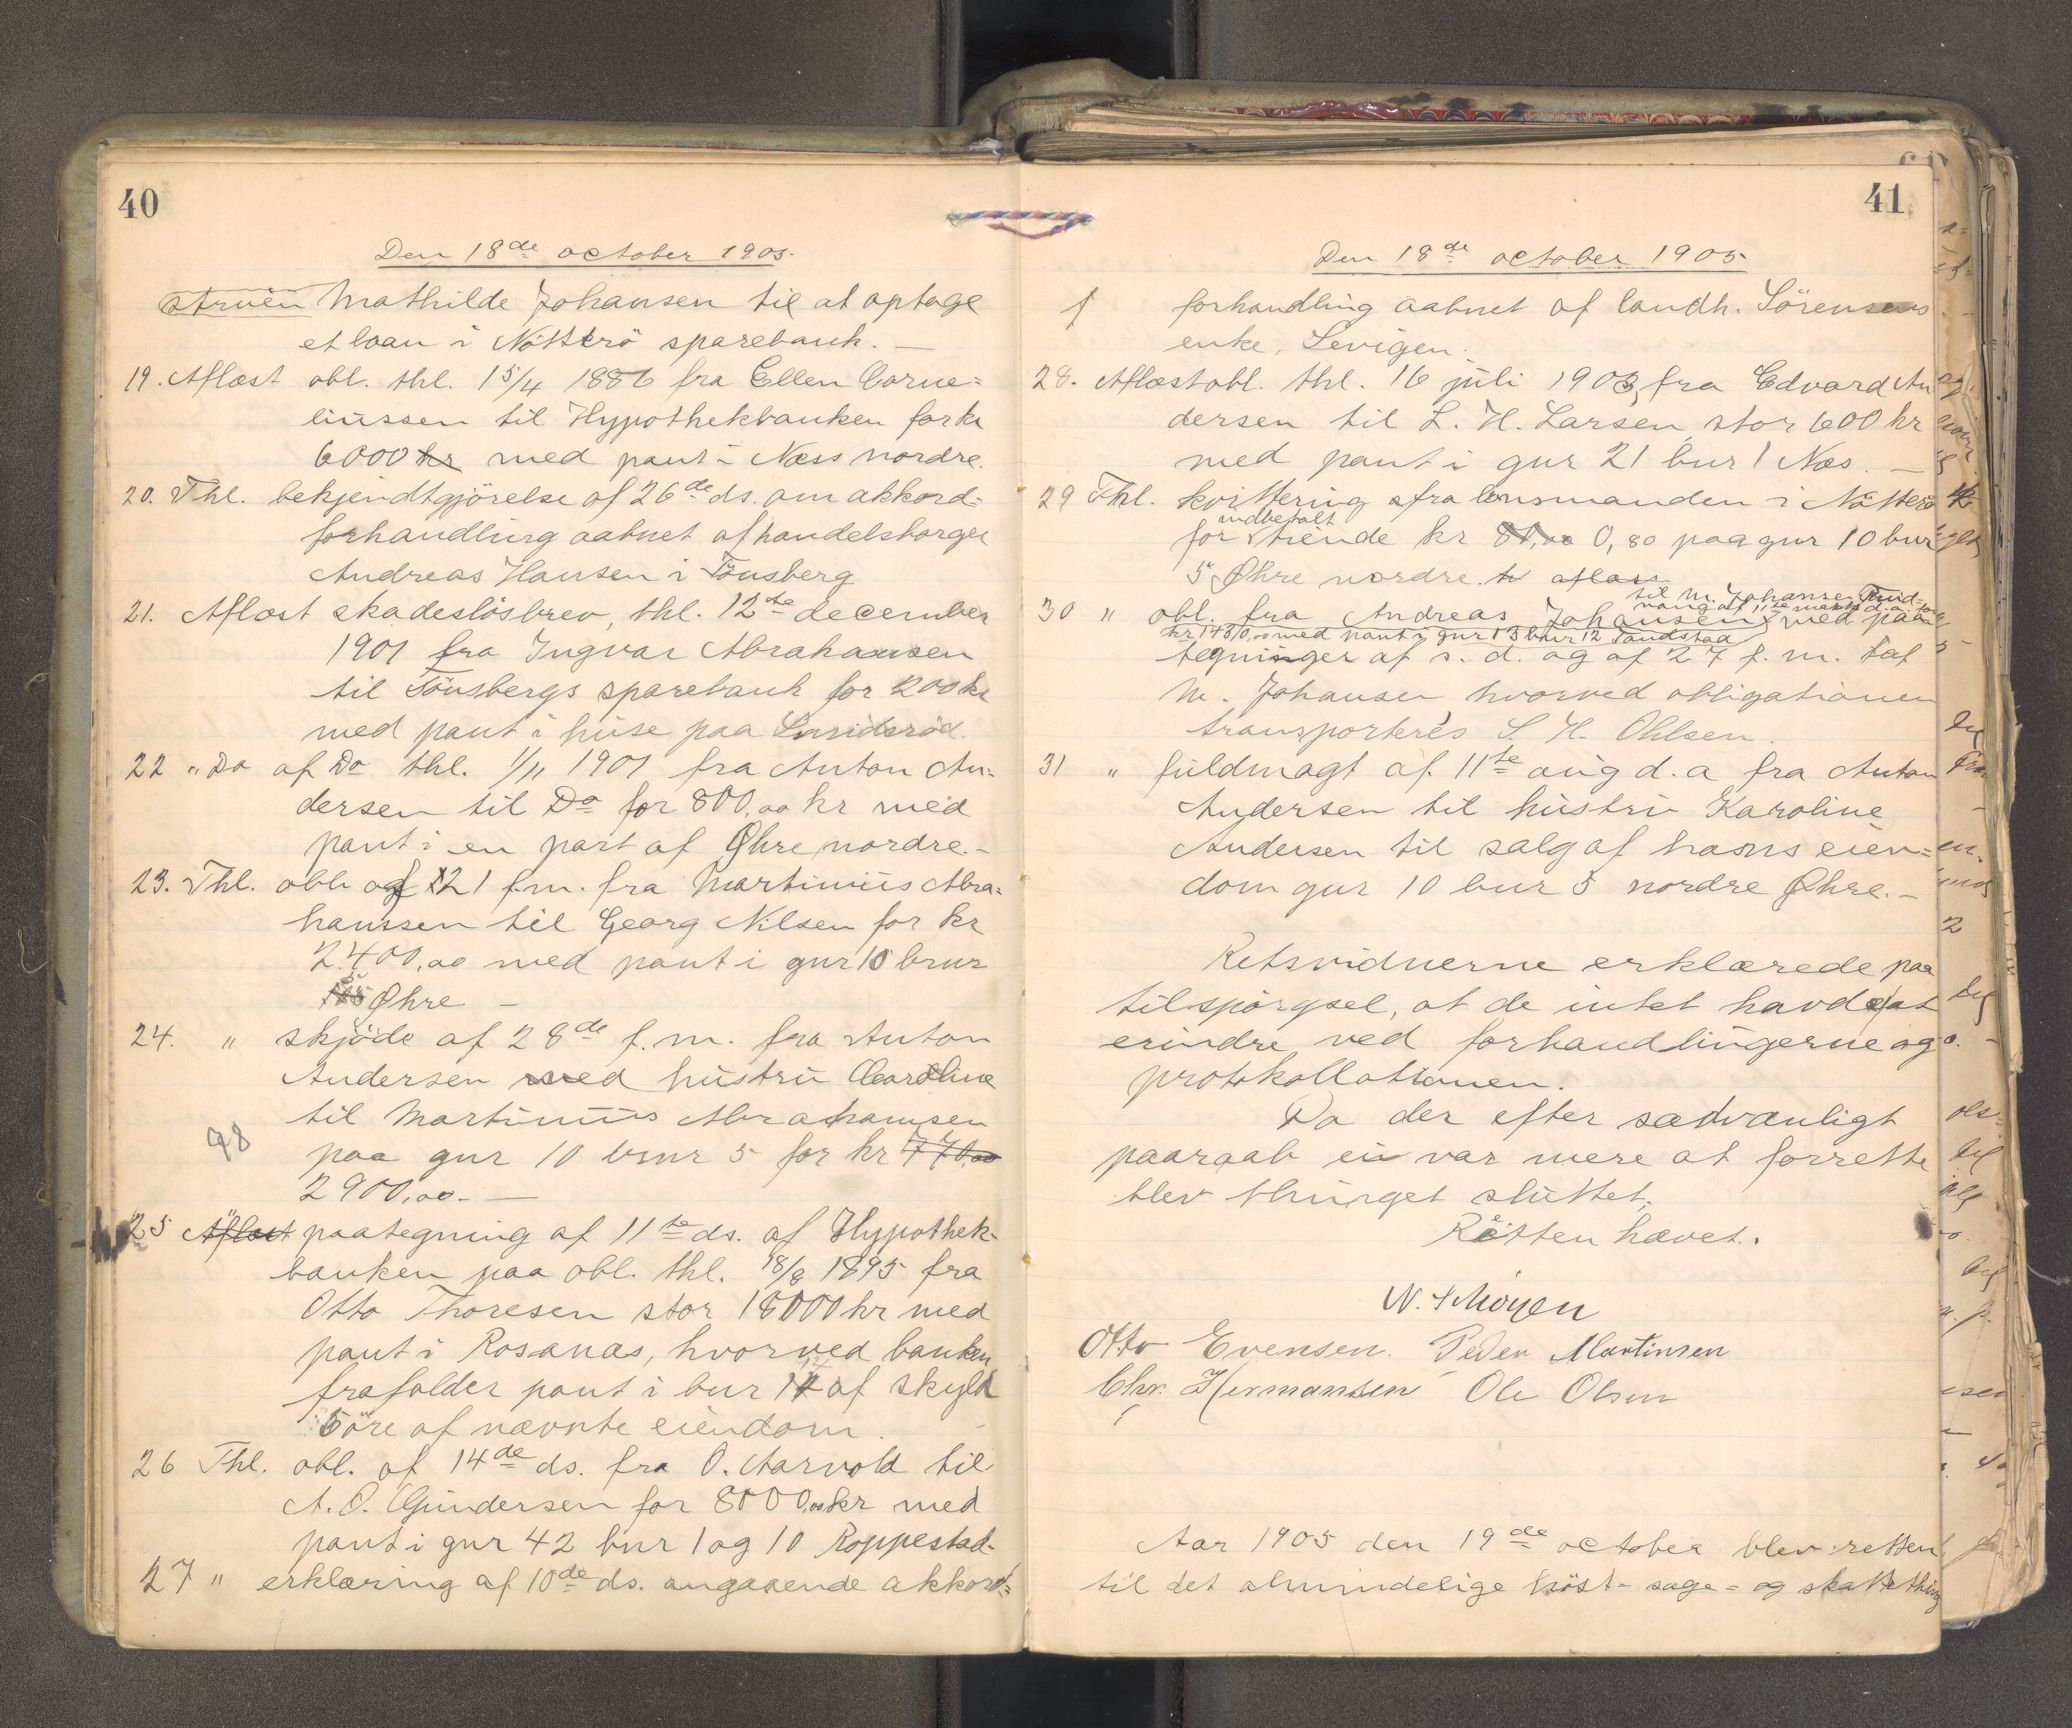 40
Den 18de october 1905.
struen Mathilde Johansen til at optage
et laan i Nötterö sparebank. —
19. Aflæst obl. thl. 15/4 1886 fra Ellen Corne=
liussen til Hypothekbanken for kr
6000 kr med pant i Næss nordre.
20. Thl. bekjendtgjörelse af 26de ds. om akkord=
forhandling aabnet af handelsborger
Andreas Hansen i Tönsberg
21. Aflæst skadeslösbrev, thl. 12te december
1901 fra Ingvar Abrahamsen
til Tönsbergs sparebank for 200 kr
med pant i huse paa
22 " Do af Do thl. 1/11 1901 fra Anton An=
dersen til Do for 800,00 kr med
pant i en part af Øhre nordre.-
23. Thl. obl. af 21 f.m. fra Martinius Abra=
hamssen til Georg Nilsen for kr
2.400,00 med pant i gnr 10 brnr
5 Øhre —
24. " skjöde af 28de f.m. fra Anton
Andersen med hustru Caroline
til Martinius Abrahamsen
98
paa gnr 10 brnr 5 for kr 770,00
2900,00.- —
25 Aflæst " paategning af 11te ds. af Hypothek-
banken paa obl. thl. 18/8 1895 fra
Otto Thoresen stor 18000 kr med
pant i Rosanes, hvorved banken
frafalder pant i bnr 14 af skyld
5 öre af nævnte eiendom.
26 Thl. obl. af 14de ds. fra O. Aarvold til
A. O. Gundersen for 8000,00 kr med
pant i gnr 42 bnr 1 og 10 Roppestad-
27 " erklæring af 10de ds. angaaende akkord=
41
Den 18de october 1905
forhandling aabnet af landh. Sörensens
enke, Levigen.
28. Aflæst obl. thl. 16 juli 1903 fra Edvard An
dersen til L. H. Larsen, stor 600 kr
med pant i gnr 21 bnr 1 Næs. —
29 Thl. kvittering fra lensmanden i Nötterö
indbetalt
for tiende kr 80,00 0,80 paa gnr 10 bnr
5 Øhre nordre. aflæs
til M. Johansen
af 11te marts d.a. for
30 " obl. fra Andreas Johansen, med paa
kr 1450,00 med pant i gnr 13 bnr 12
tegninger af s. d. og af 27 f. m. af
M. Johansen hvorved obligationen
transporteres S. H. Ohlsen.
31 " fuldmagt af 11te aug d. a fra Anton
Andersen til hustru Karoline
Andersen til salg af hans eien=
dom gnr 10 bnr 5 nordre Øhre. -
Retsvidnerne erklærede paa
tilspörgsel, at de intet havde at
erindre ved forhandlingerne og
protokollationen.
Da der efter sædvanligt
paaraab ei var mere at forrette
blev thinget sluttet.
Retten hævet.
Otto Evensen. Peder Martinsen
Chr. Hermansen Ole Olsen
Aar 1905 den 19de october blev retten
til det almindelige höst- sage- og skattething